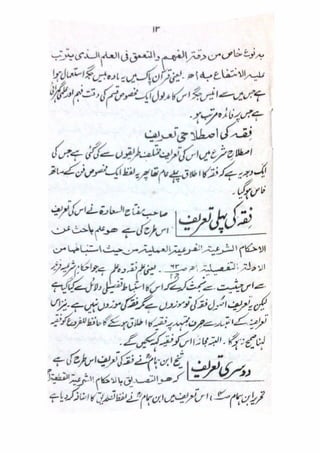 ۱۳
بہ نوع خاص من دقۃ الفہم والتعمق فی العلم الذی یترتب
علیہ الانتفاع بہ اھ۔ یعنی قرآن پاک میں یہ مادہ بیس جگہ استعمال ہوا
ہے جن میں سے انیس جگہ اس کا مدلول ایک مخصوص قسم کی دقت فہم اور علمی گہرائی
ہے جس پر فائدہ مرتب ہو۔
فقہ کی اصطلاحی تعریف
اصطلاح شرع میں اس کی تعریف مختلف طریقوں سے کی گئی ہے جس کی
ایک وجہ یہ ہے کہ فقہ کا اطلاق پہلے عام تھا پھر یہ لفظ ایک مخصوص فن کے ساتھ
خاص ہوگیا۔
فقہ کی پہلی تعریف
صاحب مفتاح السعادۃ نے اس کی تعریف
اس طرح کی ہے ھو علم باحث عن
الاحکام الشرعیۃ الفرعیۃ العملیۃ من حیث استنباطھا من
الادلۃ التفصیلیۃ اھ یعنی علم فقہ وہ علم ہے جو احکام شرعیہ فرعیہ
سے اس حیثیت سے بحث کرے کہ اس کا استنباط تفصیلی دلائل سے کیا گیا ہے
لیکن یہ تعریف اصول فقہ کی تو موزوں ہے مگر فقہ کی موزوں نہیں ہے۔ نیز اس
تعریف کے اعتبار سے صرف مجتہد پر فقیہ کا اطلاق ہو سکے گا حافظ للفروع کو فقیہ
کہنا صحیح نہ ہوگا۔ البتہ مجازاً اس کو فقیہ کہہ سکیں گے۔
دوسری تعریف
شیخ ابن ہمامؒ نے فقہ کی تعریف اس طرح کی ہے
کہ ھو التصدیق بالاحکام الشرعیۃ القطعیۃ
تحریر ابن ہمام، اس تعریف میں ابن ہمامؒ نے لفظ تصدیق کا اضافہ کر دیا ہے